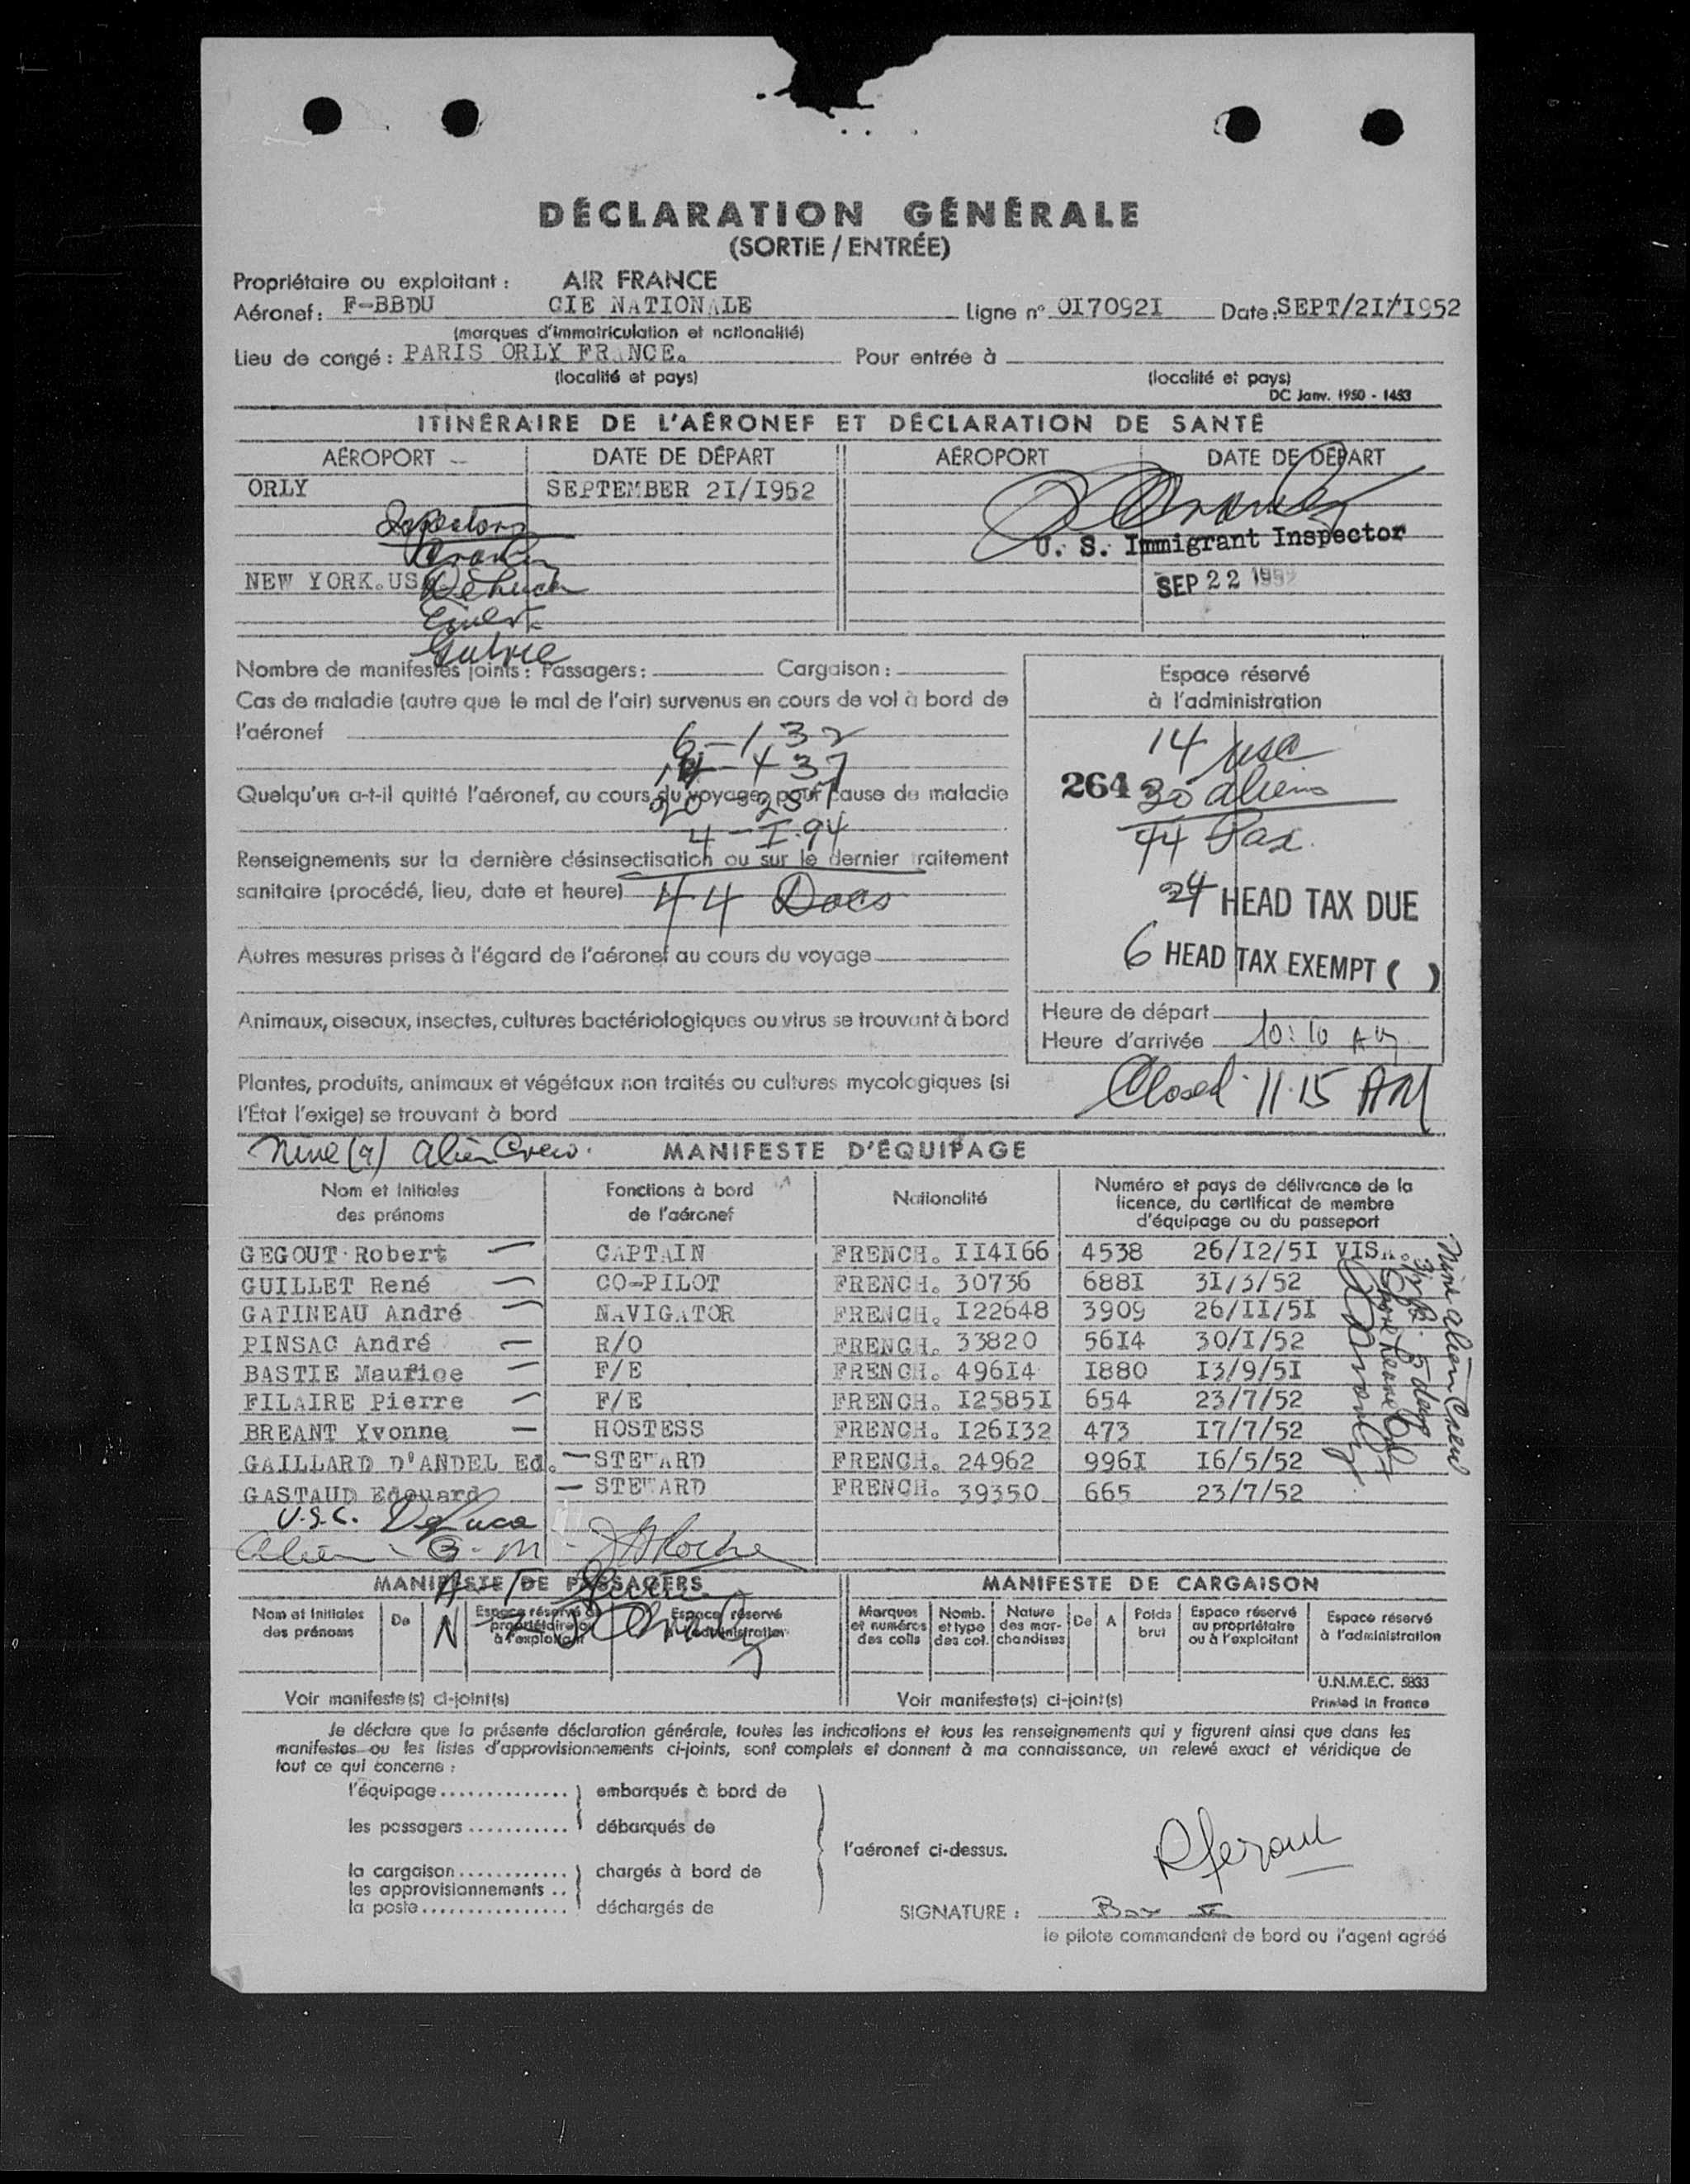 DÉCLARATION GÉNÉRALE
(SORTIE / ENTRÉE)
Propriétaire ou exploitant : AIR FRANCE
Aéronef : F-BBDU CIE NATIONALE Ligne nº 0I7092I Date : SEPT/2I/I952
(marques d'immatriculation et nationalité)
Lieu de congé : PARIS ORLY FRANCE. Pour entrée à
(localité et pays) (localité et pays)
DC Janv. 1950 - 1453
ITINÉRAIRE DE L'AÉRONEF ET DÉCLARATION DE SANTÉ
AÉROPORT DATE DE DÉPART AÉROPORT DATE DE DÉPART
ORLY SEPTEMBER 2I/I952
Inspectors
U. S. Immigrant Inspector
NEW YORK.USA
SEP 22 1952
Nombre de manifestes joints : Passagers : Cargaison :
Espace réservé
à l'administration
Cas de maladie (autre que le mal de l'air) survenus en cours de vol à bord de
l'aéronef
6-132
14-437
14 usa
264 30 aliens
44 Pax.
Quelqu'un a-t-il quitté l'aéronef, au cours du voyage, pour cause de maladie
20-257
4-I.94
Renseignements sur la dernière désinsectisation ou sur le dernier traitement
sanitaire (procédé, lieu, date et heure)
44 Docs
24 HEAD TAX DUE
6 HEAD TAX EXEMPT ( )
Autres mesures prises à l'égard de l'aéronef au cours du voyage
Animaux, oiseaux, insectes, cultures bactériologiques ou virus se trouvant à bord
Heure de départ
Heure d'arrivée 10:10 AM
Plantes, produits, animaux et végétaux non traités ou cultures mycologiques (si
l'État l'exige) se trouvant à bord
Closed 11.15 AM
Nine (9) alien Crew. MANIFESTE D'ÉQUIPAGE
Nom et Initiales des prénoms
Fonctions à bord de l'aéronef
Nationalité
Numéro et pays de délivrance de la licence, du certificat de membre d'équipage ou du passeport
GEGOUT Robert — CAPTAIN FRENCH. II4I66 4538 26/I2/5I VISA.
GUILLET René — CO-PILOT FRENCH. 30736 688I 3I/3/52
GATINEAU André — NAVIGATOR FRENCH. I22648 3909 26/II/5I
PINSAC André — R/O FRENCH. 33820 56I4 30/I/52
BASTIE Maurice — F/E FRENCH. 496I4 I880 I3/9/5I
FILAIRE Pierre — F/E FRENCH. I2585I 654 23/7/52
BREANT Yvonne — HOSTESS FRENCH. I26I32 473 I7/7/52
GAILLARD D'ANDEL Ed. — STEWARD FRENCH. 24962 996I I6/5/52
GASTAUD Edouard — STEWARD FRENCH. 39350 665 23/7/52
Nine alien Crew
U.S.C. DeLuca
Alien - G-M -
MANIFESTE DE PASSAGERS MANIFESTE DE CARGAISON
Nom et Initiales des prénoms
De
Espace réservé au propriétaire ou à l'exploitant
Espace réservé à l'administration
Marques et numéros des colis
Nomb. et type des col.
Nature des marchandises
De
A
Poids brut
Espace réservé au propriétaire ou à l'exploitant
Espace réservé à l'administration
U.N.M.E.C. 5833
Voir manifeste(s) ci-joint(s) Voir manifeste(s) ci-joint(s) Printed in France
Je déclare que la présente déclaration générale, toutes les indications et tous les renseignements qui y figurent ainsi que dans les
manifestes ou les listes d'approvisionnements ci-joints, sont complets et donnent à ma connaissance, un relevé exact et véridique de
tout ce qui concerne :
l'équipage.............. embarqués à bord de
les passagers ........... débarqués de
l'aéronef ci-dessus.
la cargaison............ chargés à bord de
les approvisionnements ..
la poste................ déchargés de
SIGNATURE :
le pilote commandant de bord ou l'agent agréé